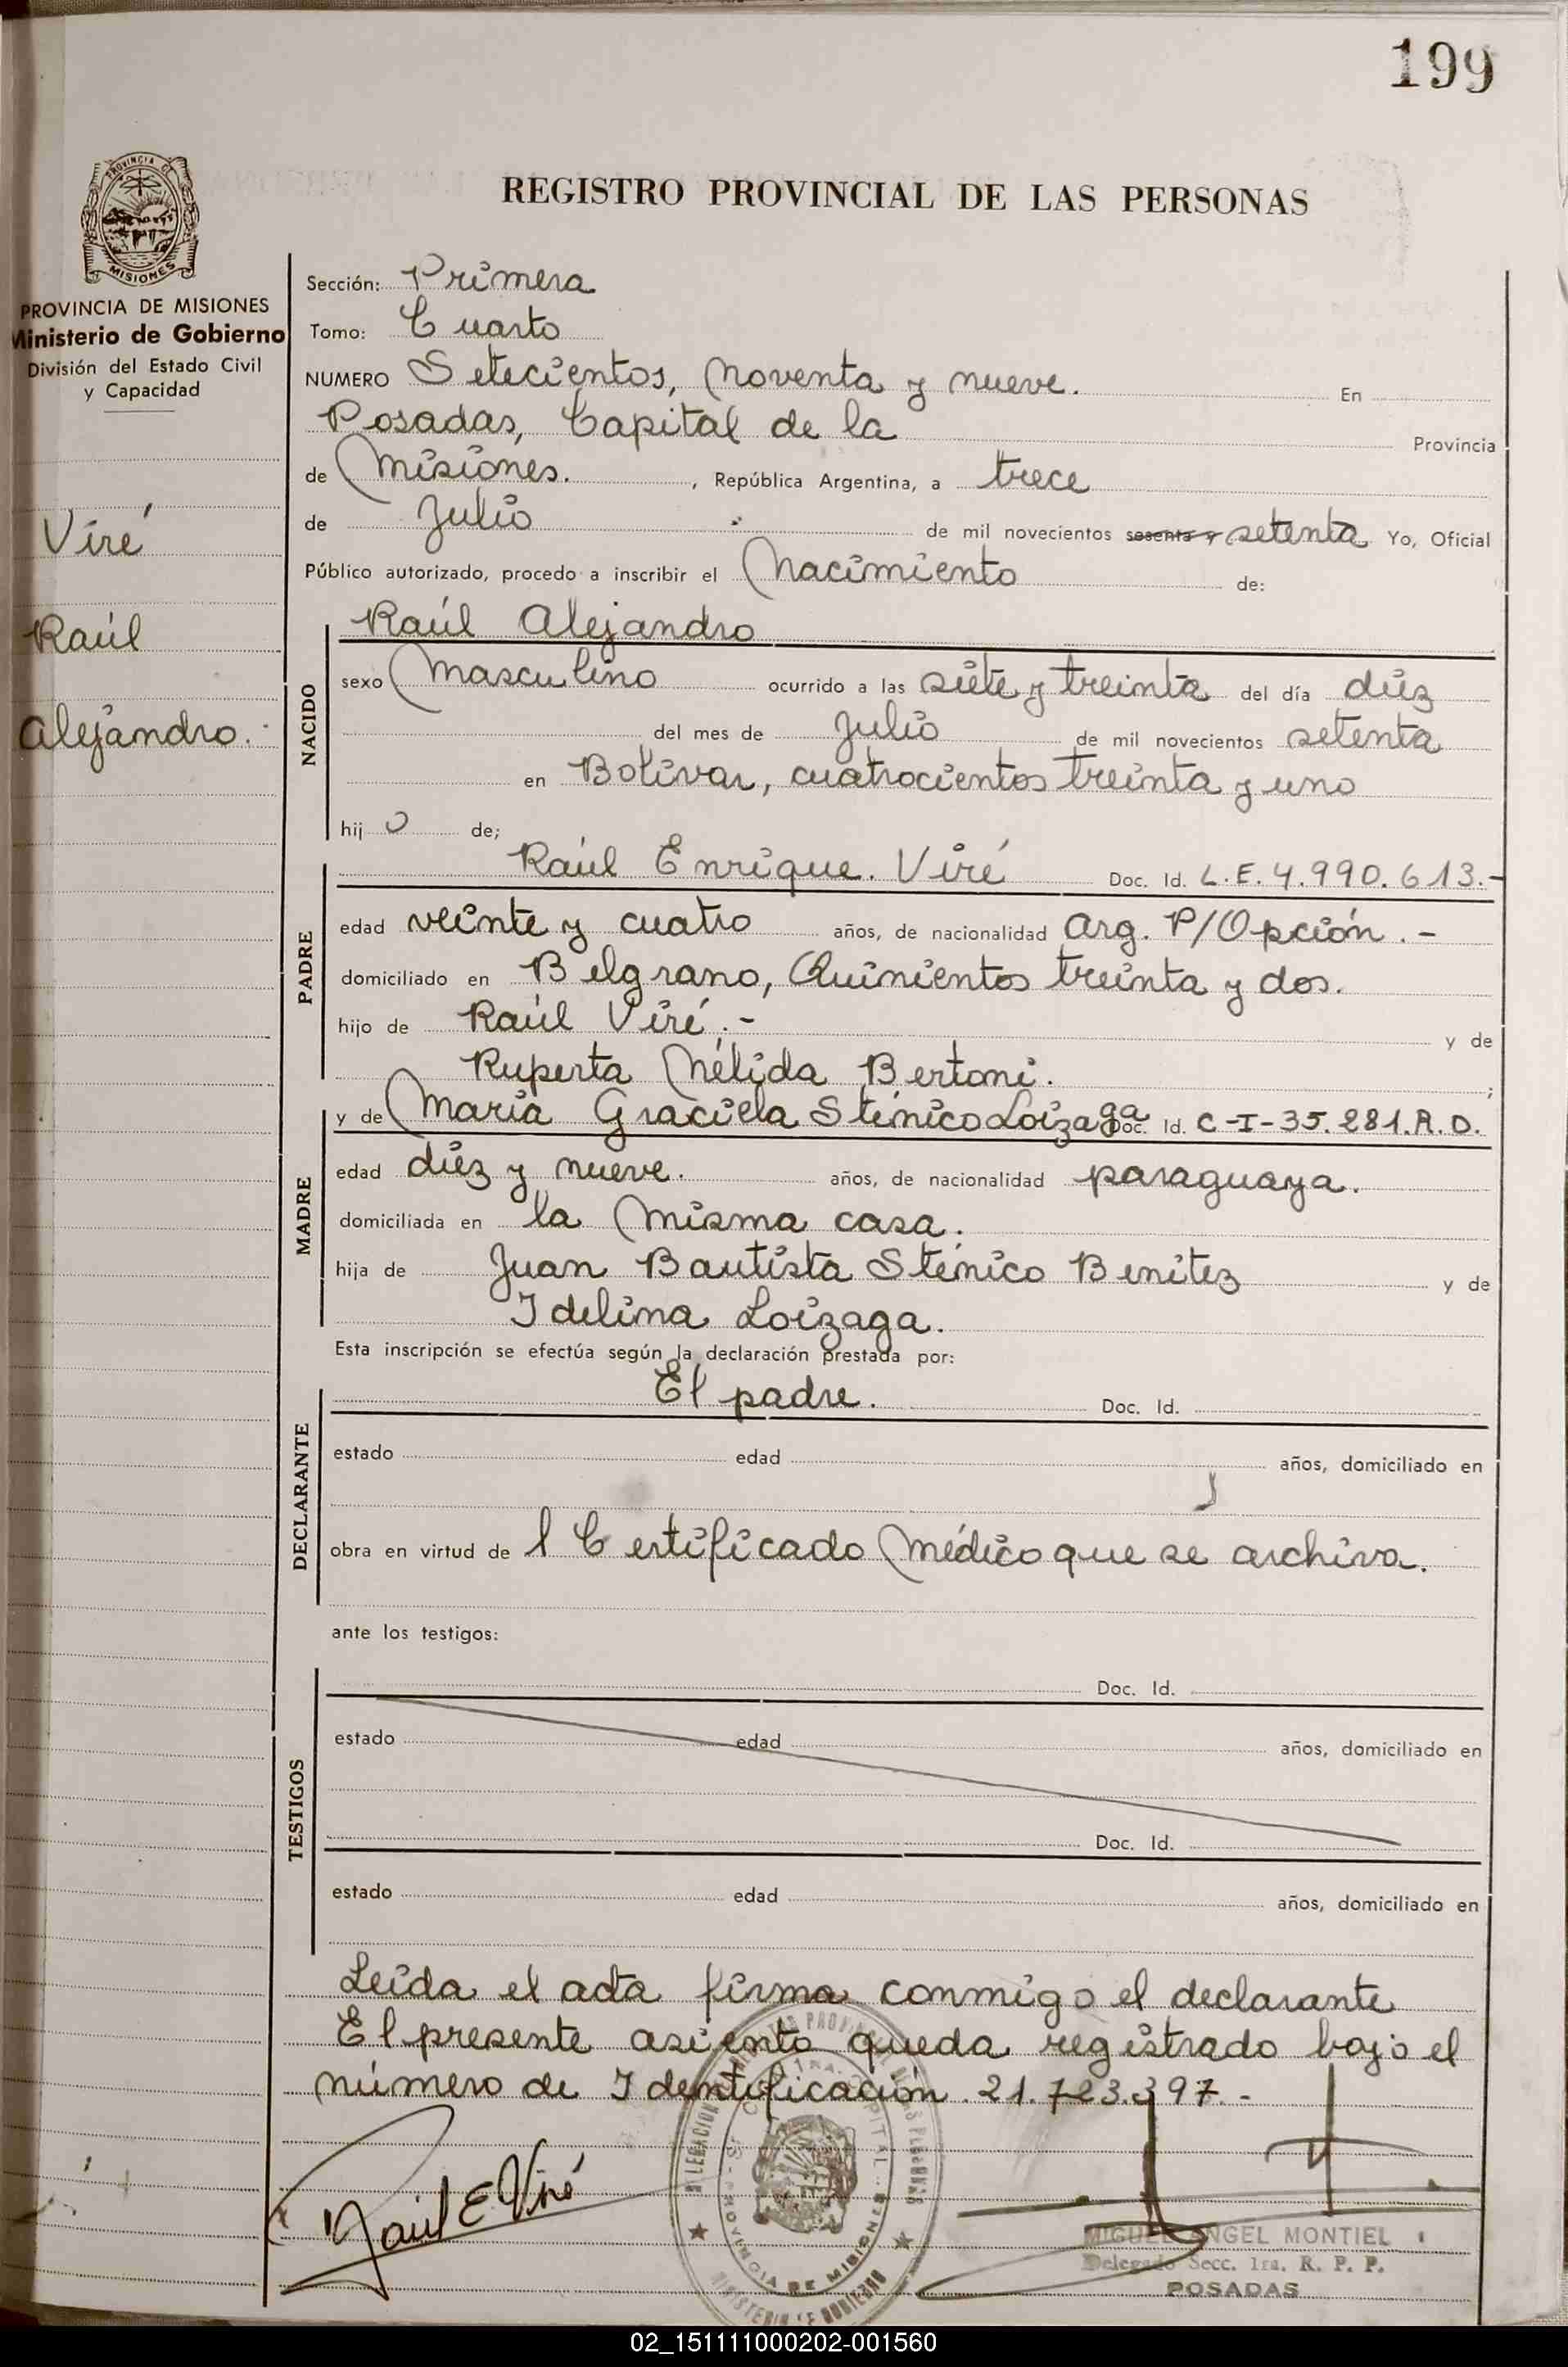 199
PROVINCIA DE
MISIONES
REGISTRO PROVINCIAL DE LAS PERSONAS
PROVINCIA DE MISIONES
Ministerio de Gobierno
División del Estado Civil
y Capacidad
Viré
Raúl
Alejandro.-
Sección: Primera
Tomo: Cuarto
NUMERO Setecientos, Noventa y nueve. En
Posadas, Capital de la Provincia
de Misiones. , República Argentina, a trece
de Julio de mil novecientos sesenta y setenta Yo, Oficial
Público autorizado, procedo a inscribir el Nacimiento de:
Raúl Alejandro
NACIDO
sexo Masculino ocurrido a las siete y treinta del día diéz
del mes de Julio de mil novecientos setenta
en Bolívar, cuatrocientos treinta y uno
hij o de;
Raúl Enrique. Viré Doc. Id. L.E. 4.990.613.-
PADRE
edad veinte y cuatro años, de nacionalidad Arg. P/Opción.-
domiciliado en Belgrano, Quinientos treinta y dos.
hijo de Raúl Viré.- y de
Ruperta Nélida Bertoni. ;
y de María Graciela Sténico Loizaga Doc. Id. C-I-35.281.R.O.
MADRE
edad diéz y nueve. años, de nacionalidad paraguaya.
domiciliada en la misma casa.
hija de Juan Bautista Sténico Benitez y de
Idelina Loizaga.
Esta inscripción se efectúa según la declaración prestada por:
El padre. Doc. Id.
DECLARANTE
estado edad años, domiciliado en
obra en virtud de l Certificado Médico que se archiva.
ante los testigos:
Doc. Id.
TESTIGOS
estado edad años, domiciliado en
Doc. Id.
estado edad años, domiciliado en
Leída el acta firma conmigo el declarante
El presente asiento queda registrado bajo el
número de Identificación. 21.723.397.-
Raúl E. Viré
PROVINCIA DE MISIONES
MINISTERIO DE GOBIERNO
MIGUEL ANGEL MONTIEL
Delegado Secc. 1ra. R. P. P.
POSADAS
02_151111000202-001560